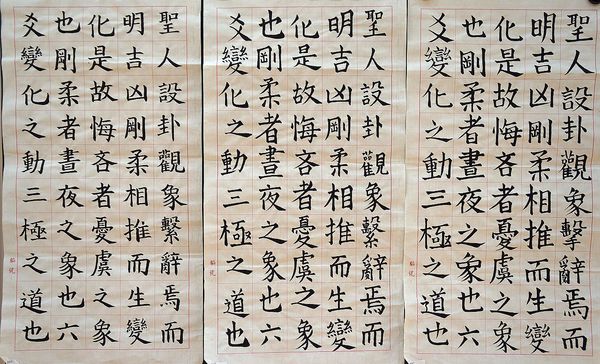 聖人設卦觀象擊辭焉而
明吉凶剛柔相推而生變
化是故悔吝者憂虞之象
也剛柔者晝夜之象也六
爻變化之動三極之道也
聖人設卦觀象繫辭焉而
明吉凶剛柔相推而生變
化是故悔吝者憂虞之象
也剛柔者晝夜之象也六
爻變化之動三極之道也
聖人設卦觀象繫辭焉而
明吉凶剛柔相推而生變
化是故悔吝者憂虞之象
也剛柔者晝夜之象也六
爻變化之動三極之道也